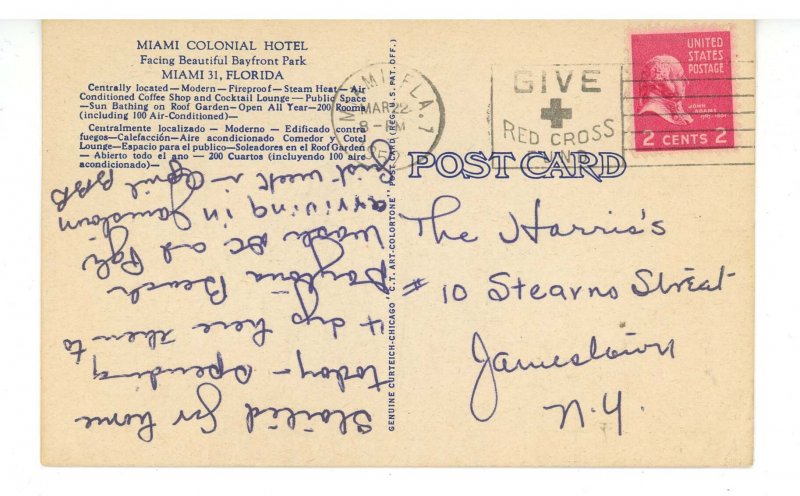 MIAMI COLONIAL HOTEL
Facing Beautiful Bayfront Park
MIAMI 31, FLORIDA
Centrally located — Modern — Fireproof — Steam Heat — Air
Conditioned Coffee Shop and Cocktail Lounge — Public Space
—Sun Bathing on Roof Garden—Open All Year—200 Rooms
(including 100 Air-Conditioned)—
Centralmente localizado - Moderno - Edificado contra
fuegos—Calefacción—Aire acondicionado Comedor y Cotel
Lounge—Espacio para el publico—Soleadores en el Roof Garden
— Abierto todo el ano — 200 Cuartos (incluyendo 100 aire
acondicionado).—
Started for home
today - spending
4 days here then to
Daytona Beach
Wash DC and
arriving in Jamestown
first week in April
GENUINE CURTEICH-CHICAGO "C.T. ART-COLORTONE" POST CARD (REG. U.S. PAT. OFF.)
MIAMI, FLA. 1
MAR 22
GIVE
RED CROSS
UNITED
STATES
POSTAGE
JOHN
ADAMS
2 CENTS 2
POST CARD
The Harris's
# 10 Stearns Street
Jamestown
N.Y.